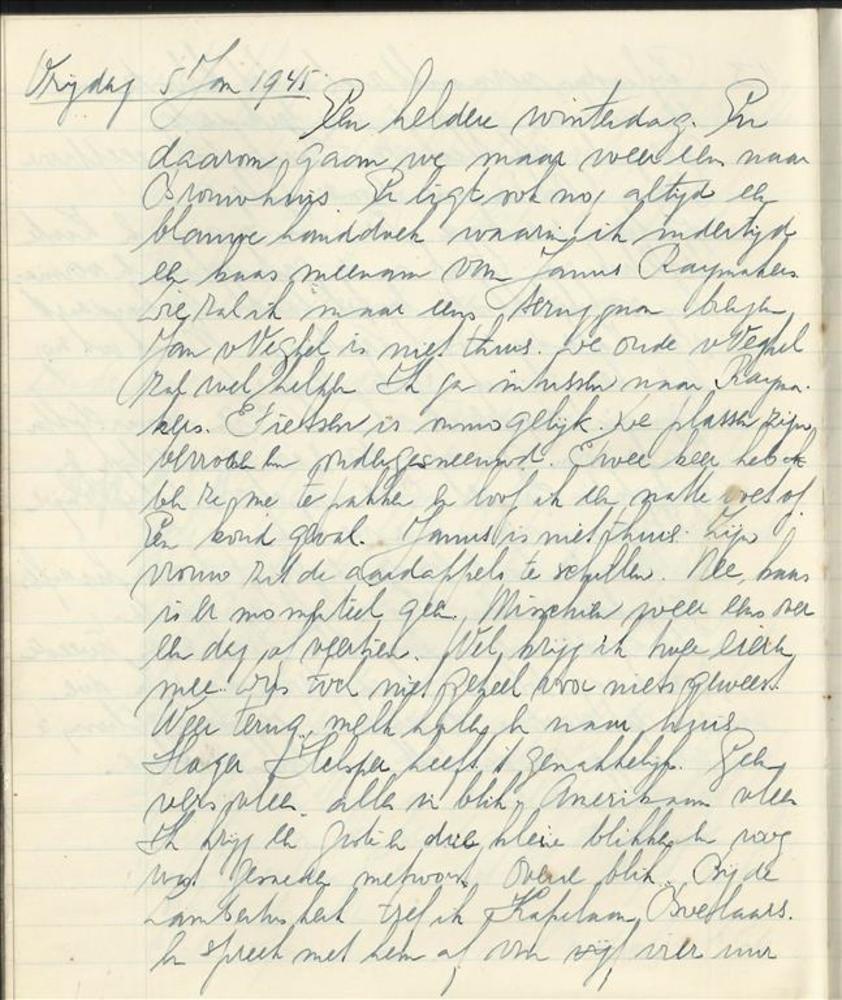 Vrijdag 5 Jan 1945.
Een heldere winterdag. En
daarom gaan we maar weer een naar
Bromohuis Er ligt ook nog altijd een
blauwe handdoek waarin ik indertijd
een kaas meenam van Janus Raymakers
die zal ik maar eens terug gaan brengen
Jan v Veghel is niet thuis. De oude v Veghel
zal wel helpen Ik ga intussen naar Rayma-
kers. Fietsen is onmogelijk. De plassen zijn
bevroren en ondergesneeuwd. Twee keer heb ik
te pakken en loop ik een natte voet op.
Een koud geval. Janus is niet thuis. Zijn
vrouw zit de aardappels te schillen. Nee, kaas
is er momenteel geen. Misschien weer eens over
een dag of veertien. Wel krijg ik twee eieren
mee. Dus toch niet geheel voor niets geweest.
Weer terug, melk halen en naar huis
Slager heeft 't gemakkelijk. Geen
vers vlees. alles in blik. Amerikaans vlees
Ik krijg een grote en drie kleine blikken en nog
wat gesneden metworst. Overal blik. Bij de
Lambertuskerk tref ik Kapelaan
En spreek met hem af om vier uur